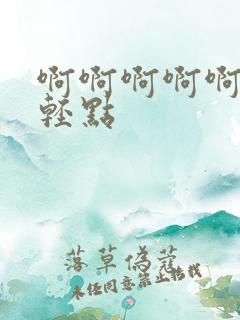 啊啊啊啊啊
轻點
落草為蔻
未经同意禁止转载